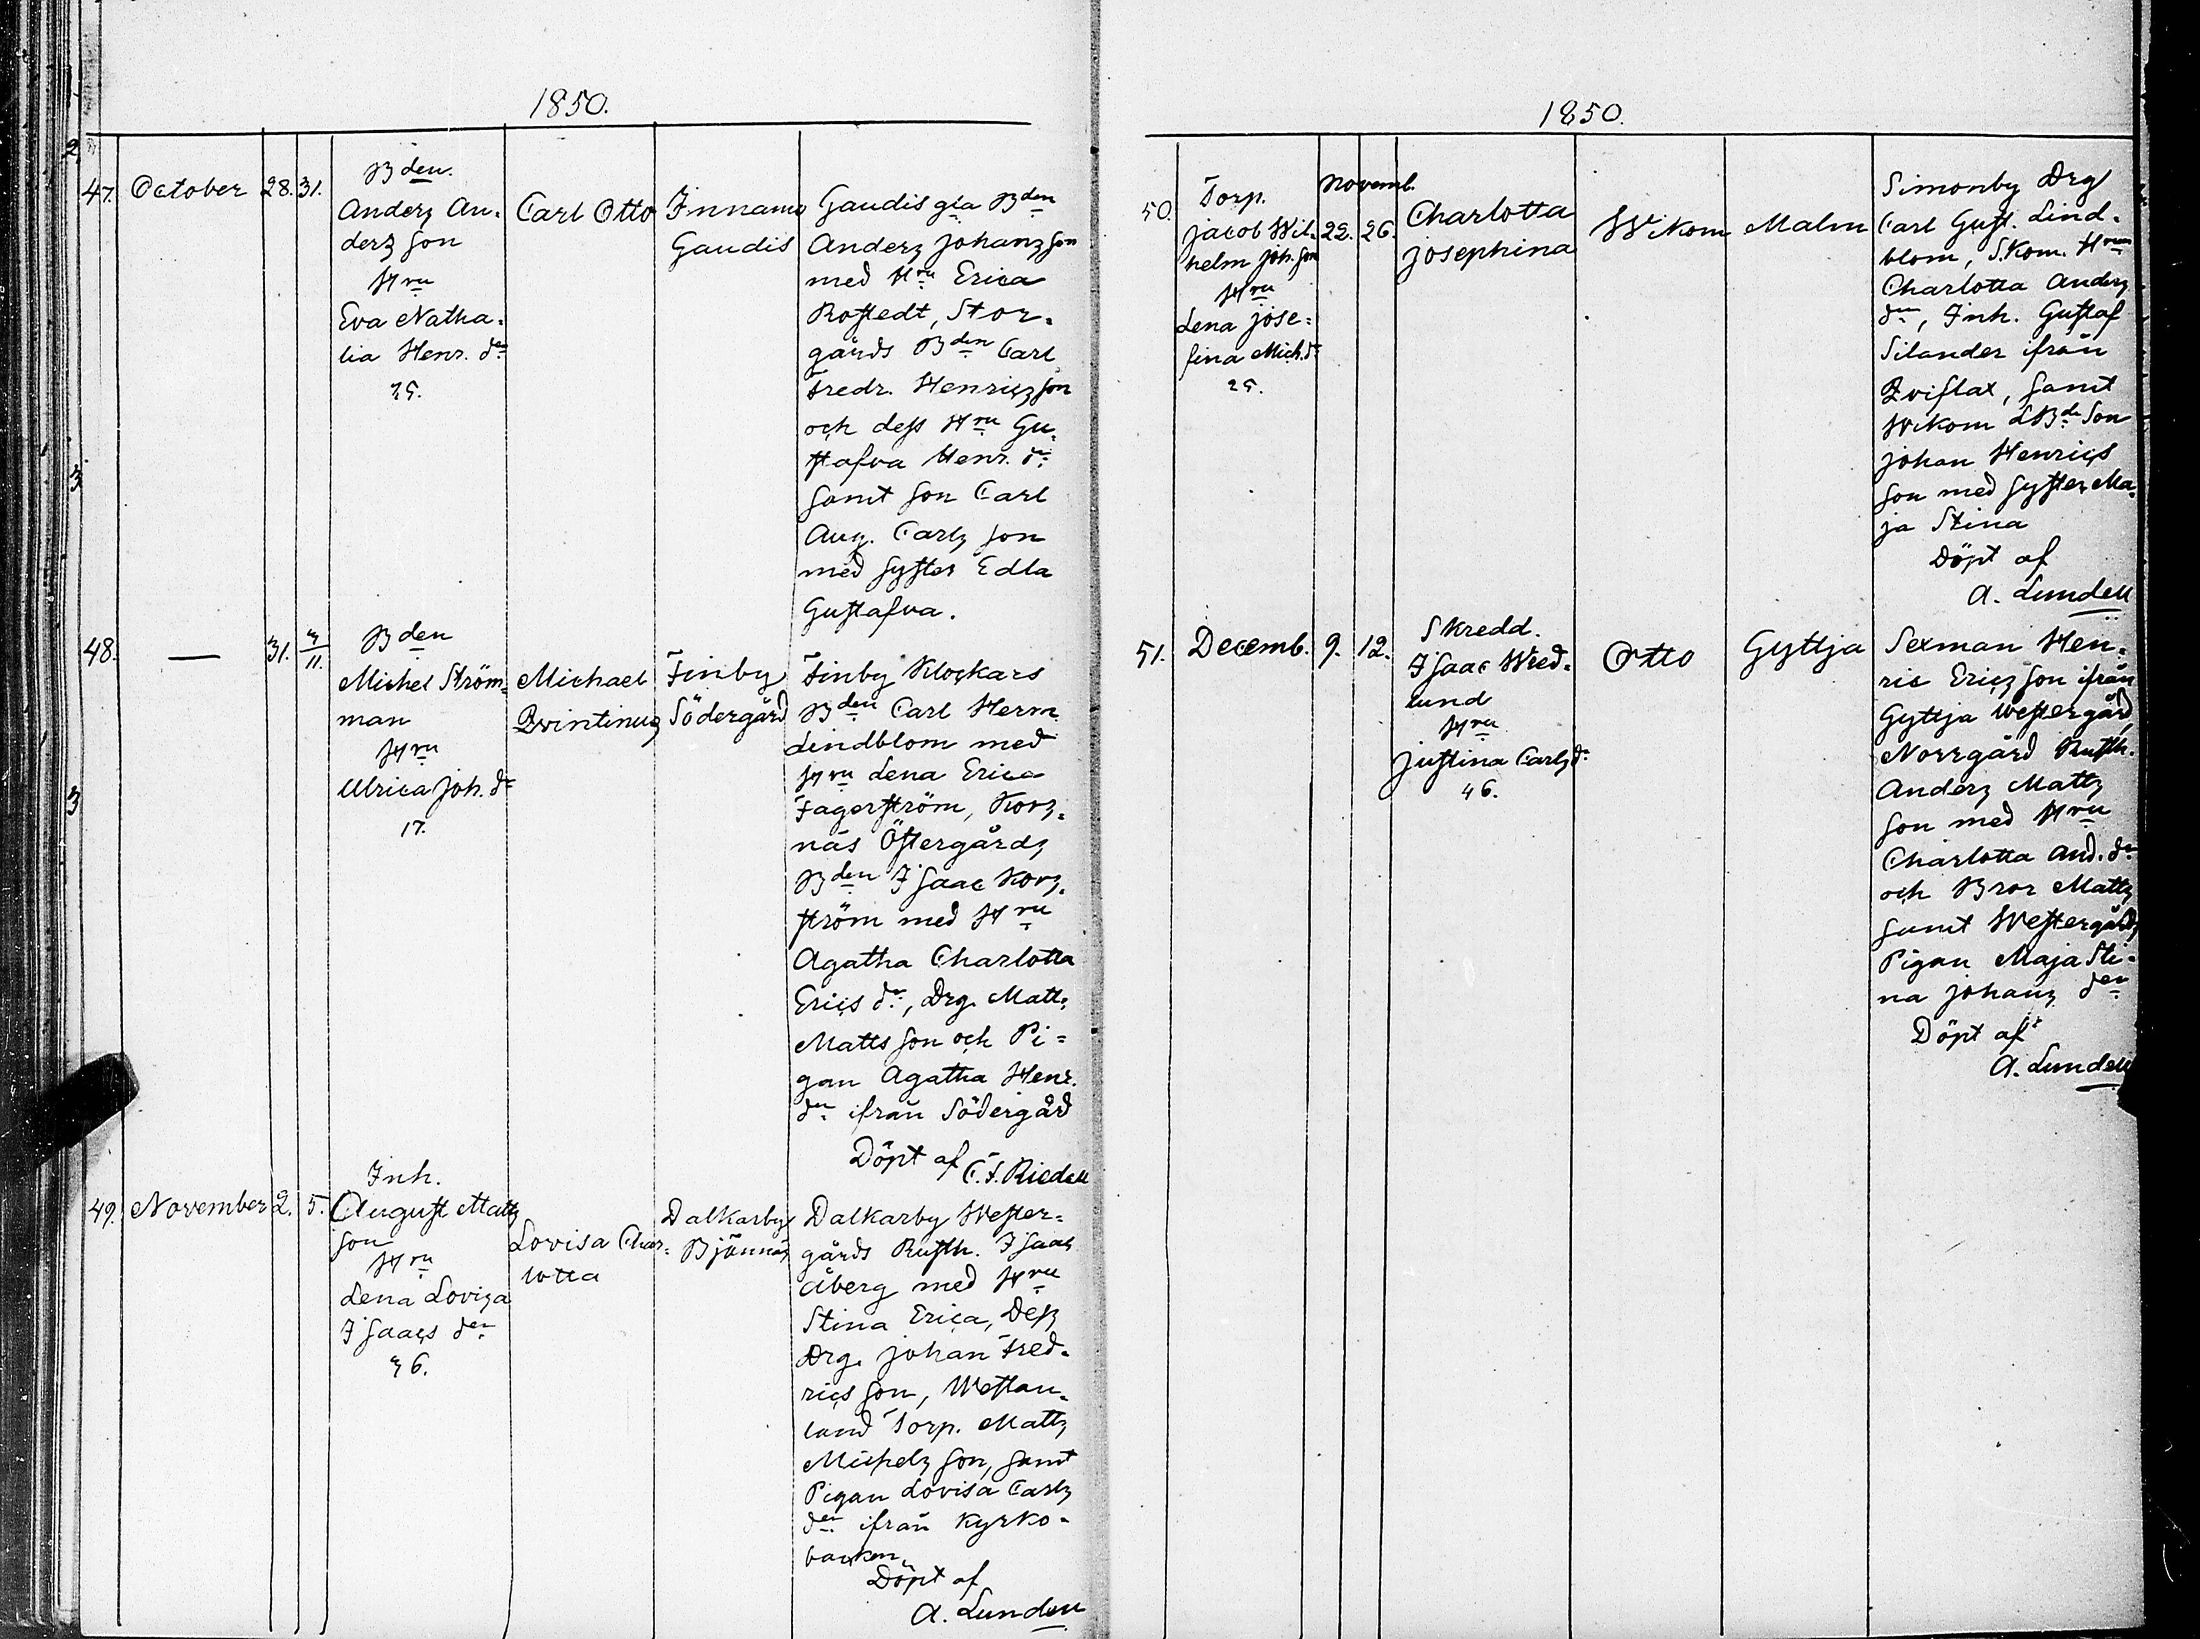 1850.
47. October 28. 31.
Bden
Anders An-
ders son
Hru
Eva Natha-
lia Henr. dr
35.
Carl Otto
Innamo
Gaudis
Gaudis gla Bden
Anders Johans son
med Hru Erica
Rostedt, Stor-
gårds Bden Carl
Fredr. Henrics son
och dess Hru Gu-
stafva Henr. dr
samt son Carl
Aug. Carls son
med syster Edla
Gustafva.
48. — 31. 3/11.
Bden
Michel Ström-
man
Hru
Ulrica Joh. dr
17.
Michael
Qvintinus
Finby
Södergård
Finby Klockars
Bden Carl Herm
Lindblom med
Hru Lena Erica
Fagerström, Kors-
näs Östergårds
Bden Isaac Kors-
ström med Hru
Agatha Charlotta
Erics dr, Drg. Matts
Matts son och Pi-
gan Agatha Henr.
dr ifrån Södergård
Döpt af C. F. Riedell
49. November 2. 5.
Inh.
August Matts
son
Hru
Lena Lovisa
Isaacs der
36.
Lovisa Char-
lotta
Dalkarby
Björnnäs
Dalkarby Wester-
gårds Rusth. Isaac
Åberg med Hru
Stina Erica, Dess
Drg. Johan Fred-
rics son, Westan-
land Torp. Matts
Michels son, samt
Pigan Lovisa Carls
der ifrån Kyrko-
backen.
Döpt af
A. Lundell
1850.
50.
Torp.
Jacob Wil-
helm Joh. son
Hru
Lena Jose-
fina Mich. dr
25.
Novemb.
22. 26.
Charlotta
Josephina
Wikom
Malm
Simonby Drg
Carl Gust. Lind-
blom, S.kom. Hrun
Charlotta Anders
dr, Inh. Gustaf
Silander ifrån
Qviflax, samt
Wikom LBde Son
Johan Henrics
son med syster Ma-
ja Stina
Döpt af
A. Lundell
51. Decemb. 9. 12.
Skredd.
Isaac Wred-
lund
Hru
Justina Carls dr
46.
Otto
Gyttja
Sexman Hen-
ric Erics son ifrån
Gyttja Westergård,
Norrgård Rusth.
Anders Matts
son med Hru
Charlotta And. dr
och Bror Matts
samt Westergårds
Pigan Maja Sti-
na Johans der
Döpt af
A. Lundell